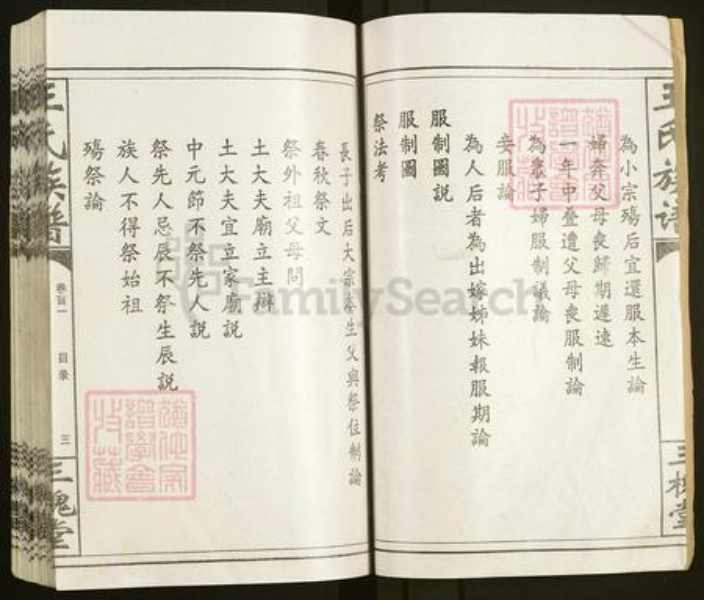 王氏族譜
三槐堂
為小宗殤后宜還服本生論
婦奔父母喪歸期遲速
一年中疊遭父母喪服制論
為眾子婦服制議論
妾服論
為人后者為出嫁姊妹報服期論
服制圖說
服制圖
祭法考
長子出后大宗本生父與祭位制論
春秋祭文
祭外祖父母問
士大夫廟立主辯
士大夫宜立家廟說
中元節不祭先人說
祭先人忌辰不祭生辰說
族人不得祭始祖
殤祭論
王氏族譜
卷首一
目录
三
三槐堂
FamilySearch